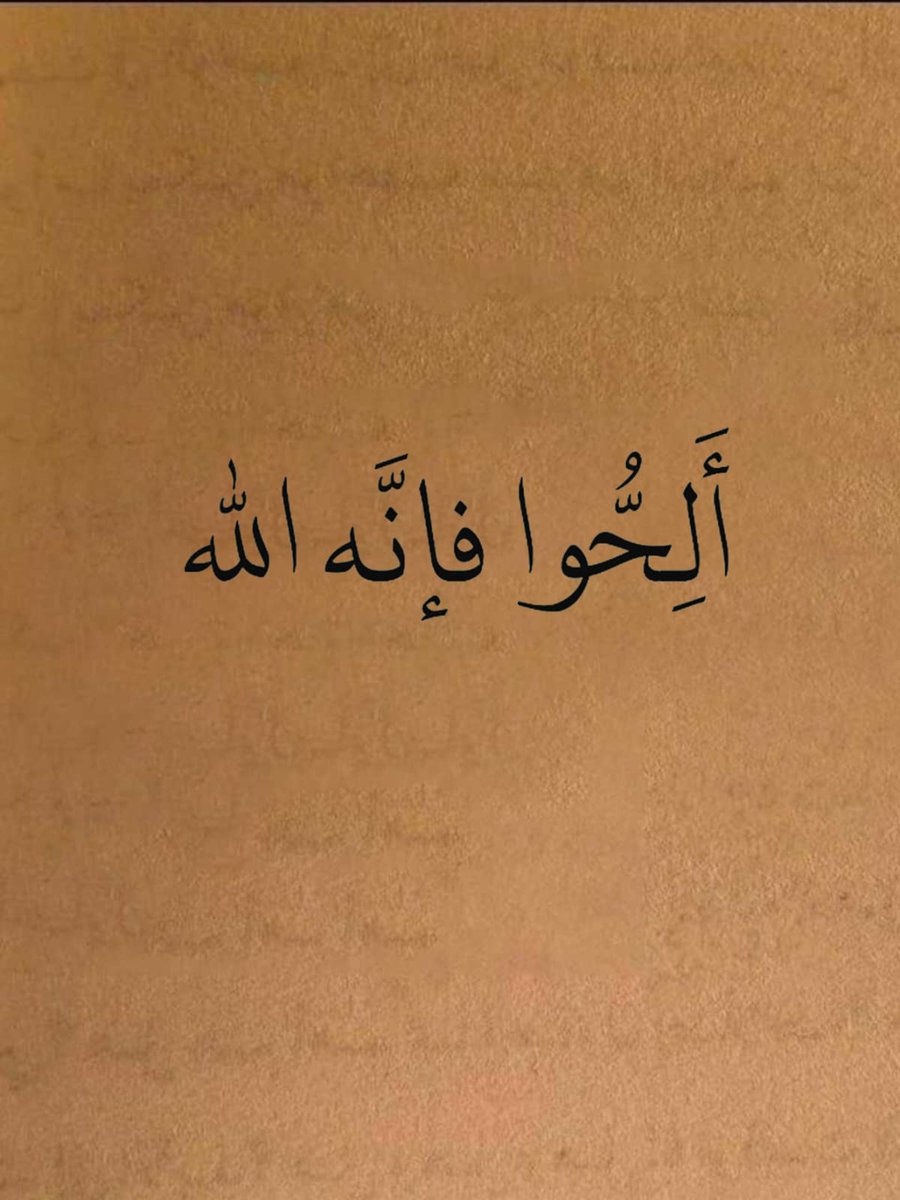 أَلِحُّوا فإنَّه الله